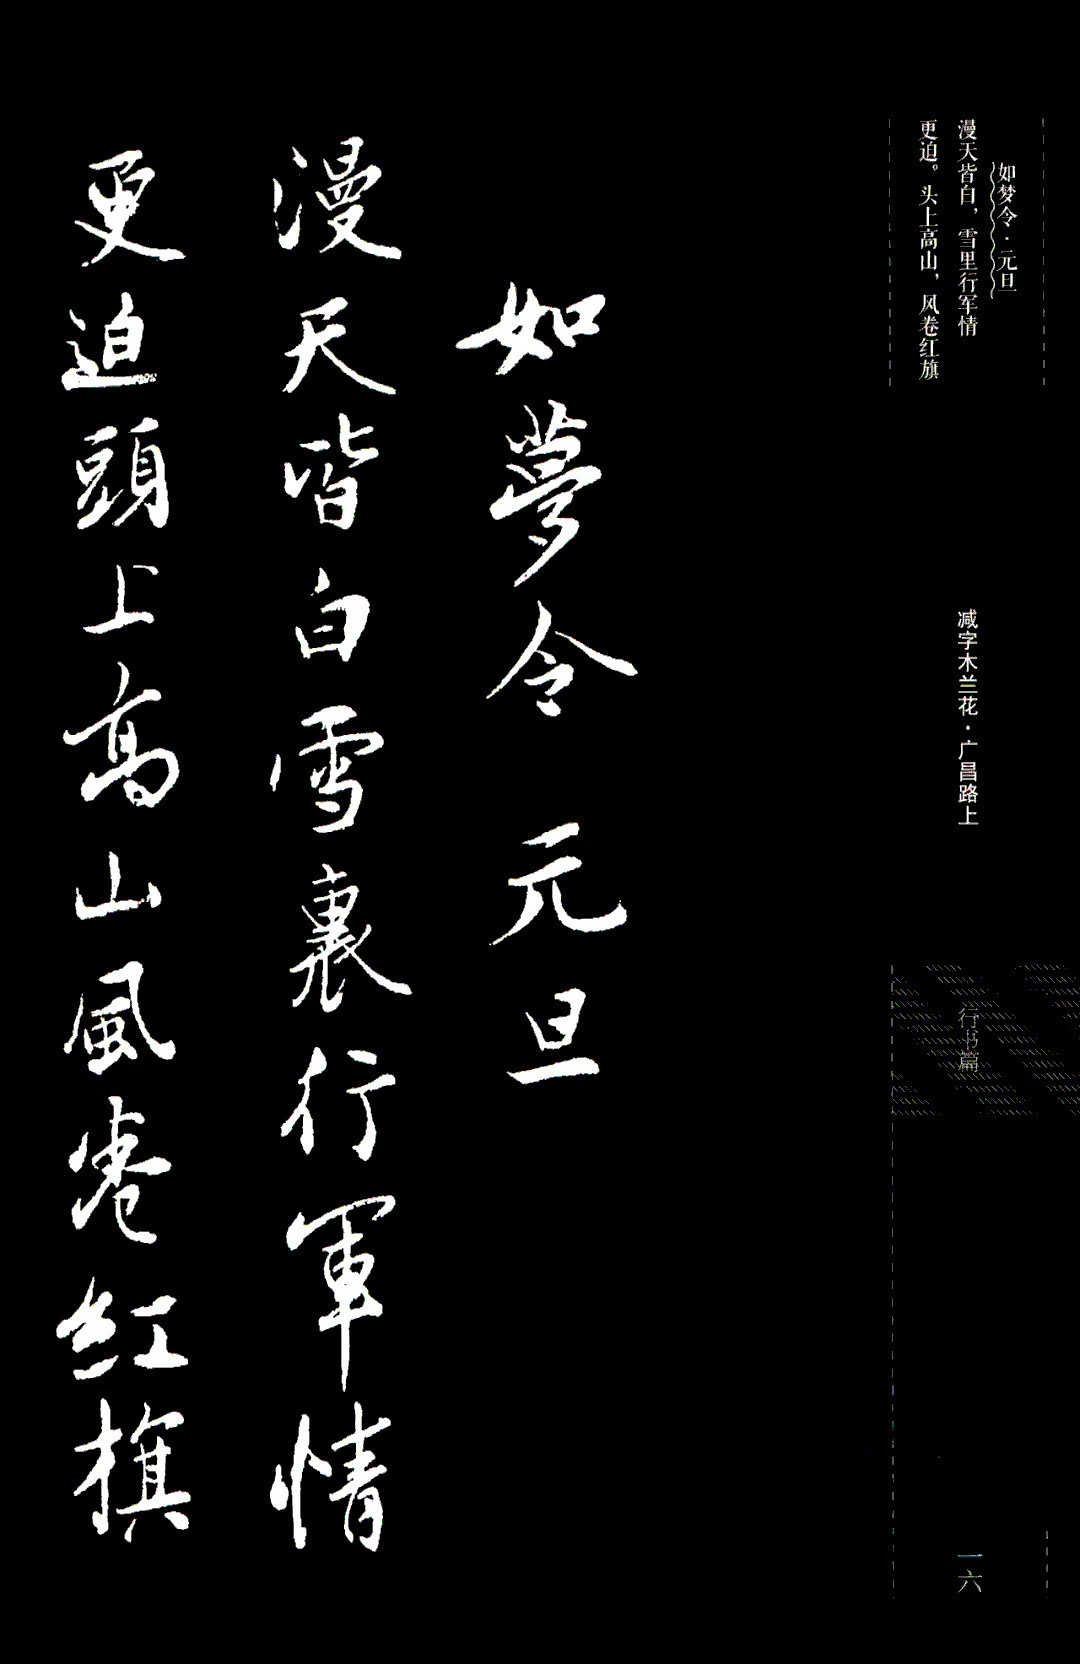 如梦令·元旦
漫天皆白，雪里行军情
更迫。头上高山，风卷红旗
减字木兰花·广昌路上
行书篇
一六
如夢令 元旦
漫天皆白雪裏行軍情
更迫頭上高山風卷红旗